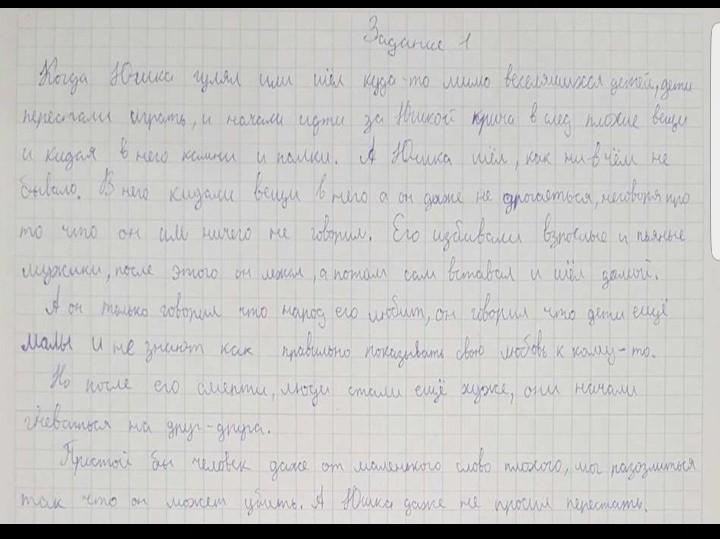 Задание 1
Когда Юшка гулял или шёл куда-то мимо веселящихся детей, дети
перестали играть, и начали идти за Юшкой крича в след плохие вещи
и кидая в него камни и палки. А Юшка шёл, как ни-в чём не
бывало. В него кидали вещи в него а он даже не дрогается, неговоря про
то что он им ничего не говорил. Его избивали взрослые и пьяные
мужики, после этого он лежал, а потом сам вставал и шёл домой.
А он только говорил что народ его любит, он говорил что дети ещё
малы и не знают как правильно показывать свою любовь к кому-то.
Но после его смерти, люди стали ещё хуже, они начали
гневаться на друг-друга.
Простой бы человек даже от маленького слово плохого, мог разозлиться
так что он может убить. А Юшка даже не просил перестать.